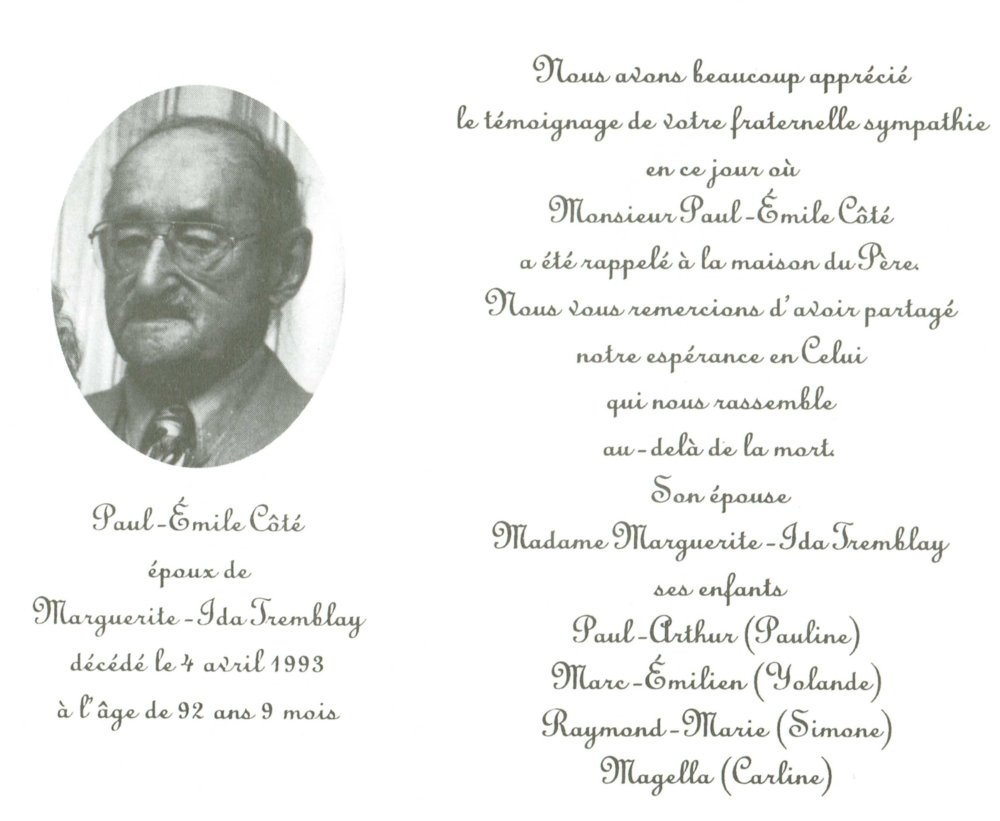 Paul-Émile Côté
époux de
Marguerite-Ida Tremblay
décédé le 4 avril 1993
à l'âge de 92 ans 9 mois
Nous avons beaucoup apprécié
le témoignage de votre fraternelle sympathie
en ce jour où
Monsieur Paul-Émile Côté
a été rappelé à la maison du Père.
Nous vous remercions d'avoir partagé
notre espérance en Celui
qui nous rassemble
au-delà de la mort.
Son épouse
Madame Marguerite-Ida Tremblay
ses enfants
Paul-Arthur (Pauline)
Marc-Émilien (Yolande)
Raymond-Marie (Simone)
Magella (Carline)